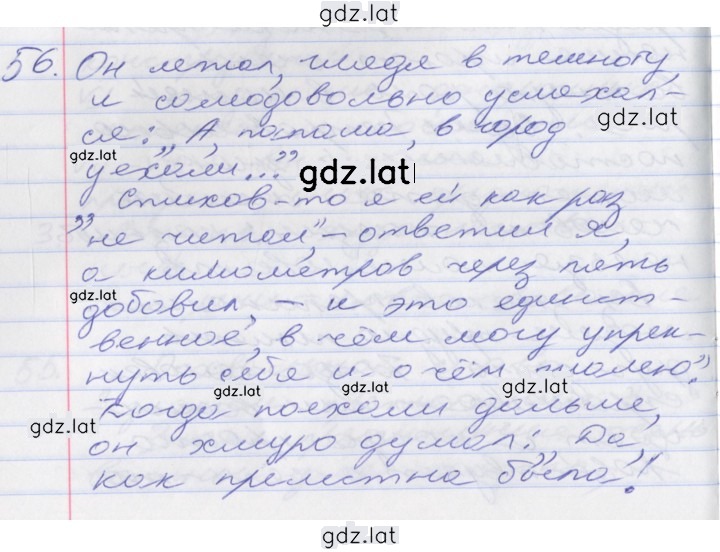 gdz.lat
56. Он лежал, глядя в темноту
и самодовольно усмехал-
ся: „А, папаша, в город
gdz.lat
gdz.lat
уехали..."
gdz.lat
Стихов-то я ей как раз
„не читал", – ответил я,
а километров через пять
gdz.lat
добавил, – и это единст-
венное, в чём могу упрек-
нуть себя и о чём жалею."
gdz.lat
gdz.lat
gdz.lat
Когда поехали дальше,
gdz.lat
он хмуро думал: „Да,
как прелестна была!
gdz.lat